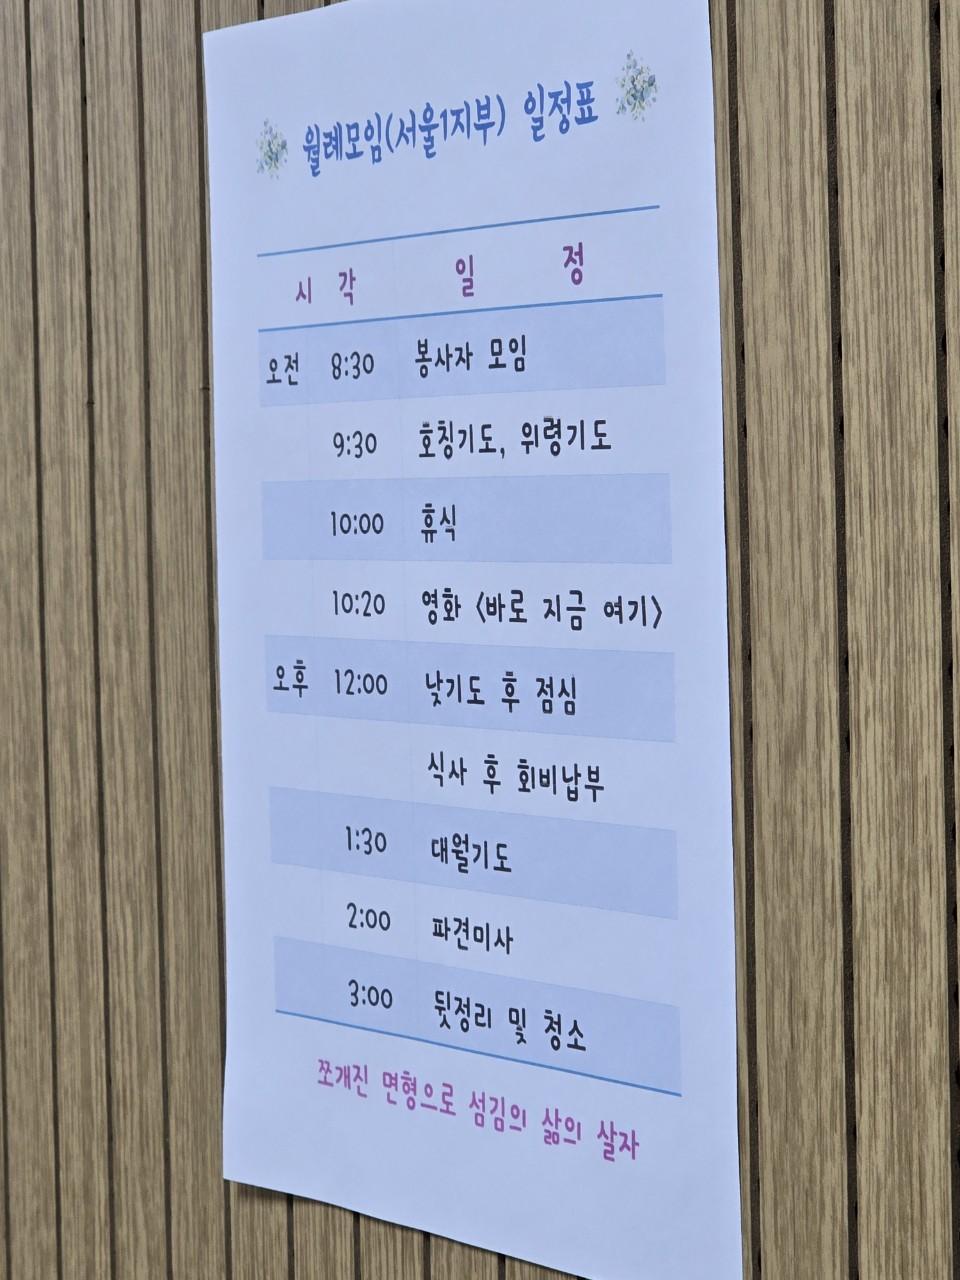 월례모임(서울1지부) 일정표
시 각 일 정
오전 8:30 봉사자 모임
9:30 호칭기도, 위령기도
10:00 휴식
10:20 영화 <바로 지금 여기>
오후 12:00 낮기도 후 점심
식사 후 회비납부
1:30 대월기도
2:00 파견미사
3:00 뒷정리 및 청소
쪼개진 면형으로 섬김의 삶의 살자